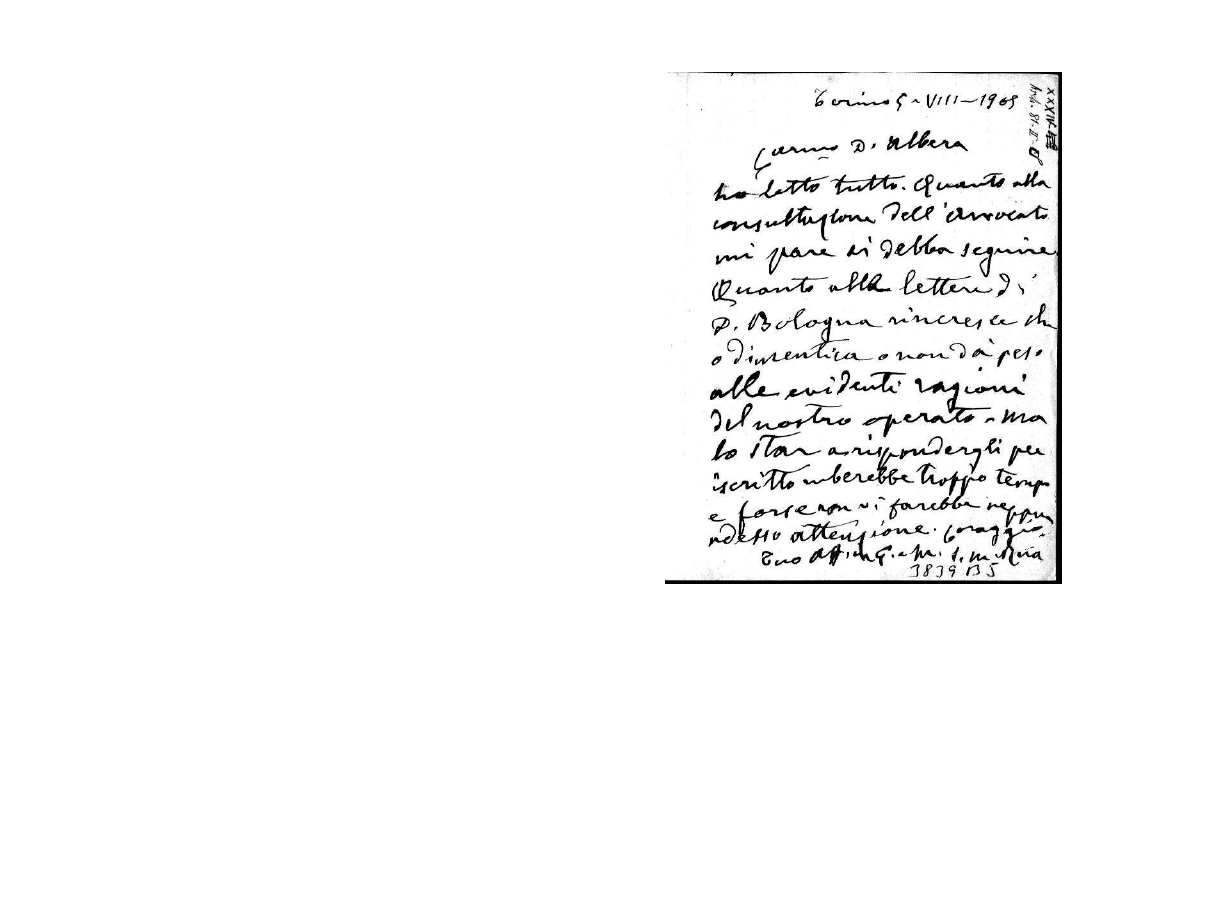 Torino 5-VIII-1905
Car.mo D. Albera
ho letto tutto. Quanto alla
consultazione dell'avvocato
mi pare si debba seguire.
Quanto alle lettere di
D. Bologna rincresce che
o dimentica o non dà peso
alle evidenti ragioni
del nostro operato - ma
lo star a rispondergli per
iscritto ruberebbe troppo tempo
e forse non vi farebbe neppur
adesso attenzione. Coraggio.
Tuo aff. in G. e M. S. M. Rua
3839 B5